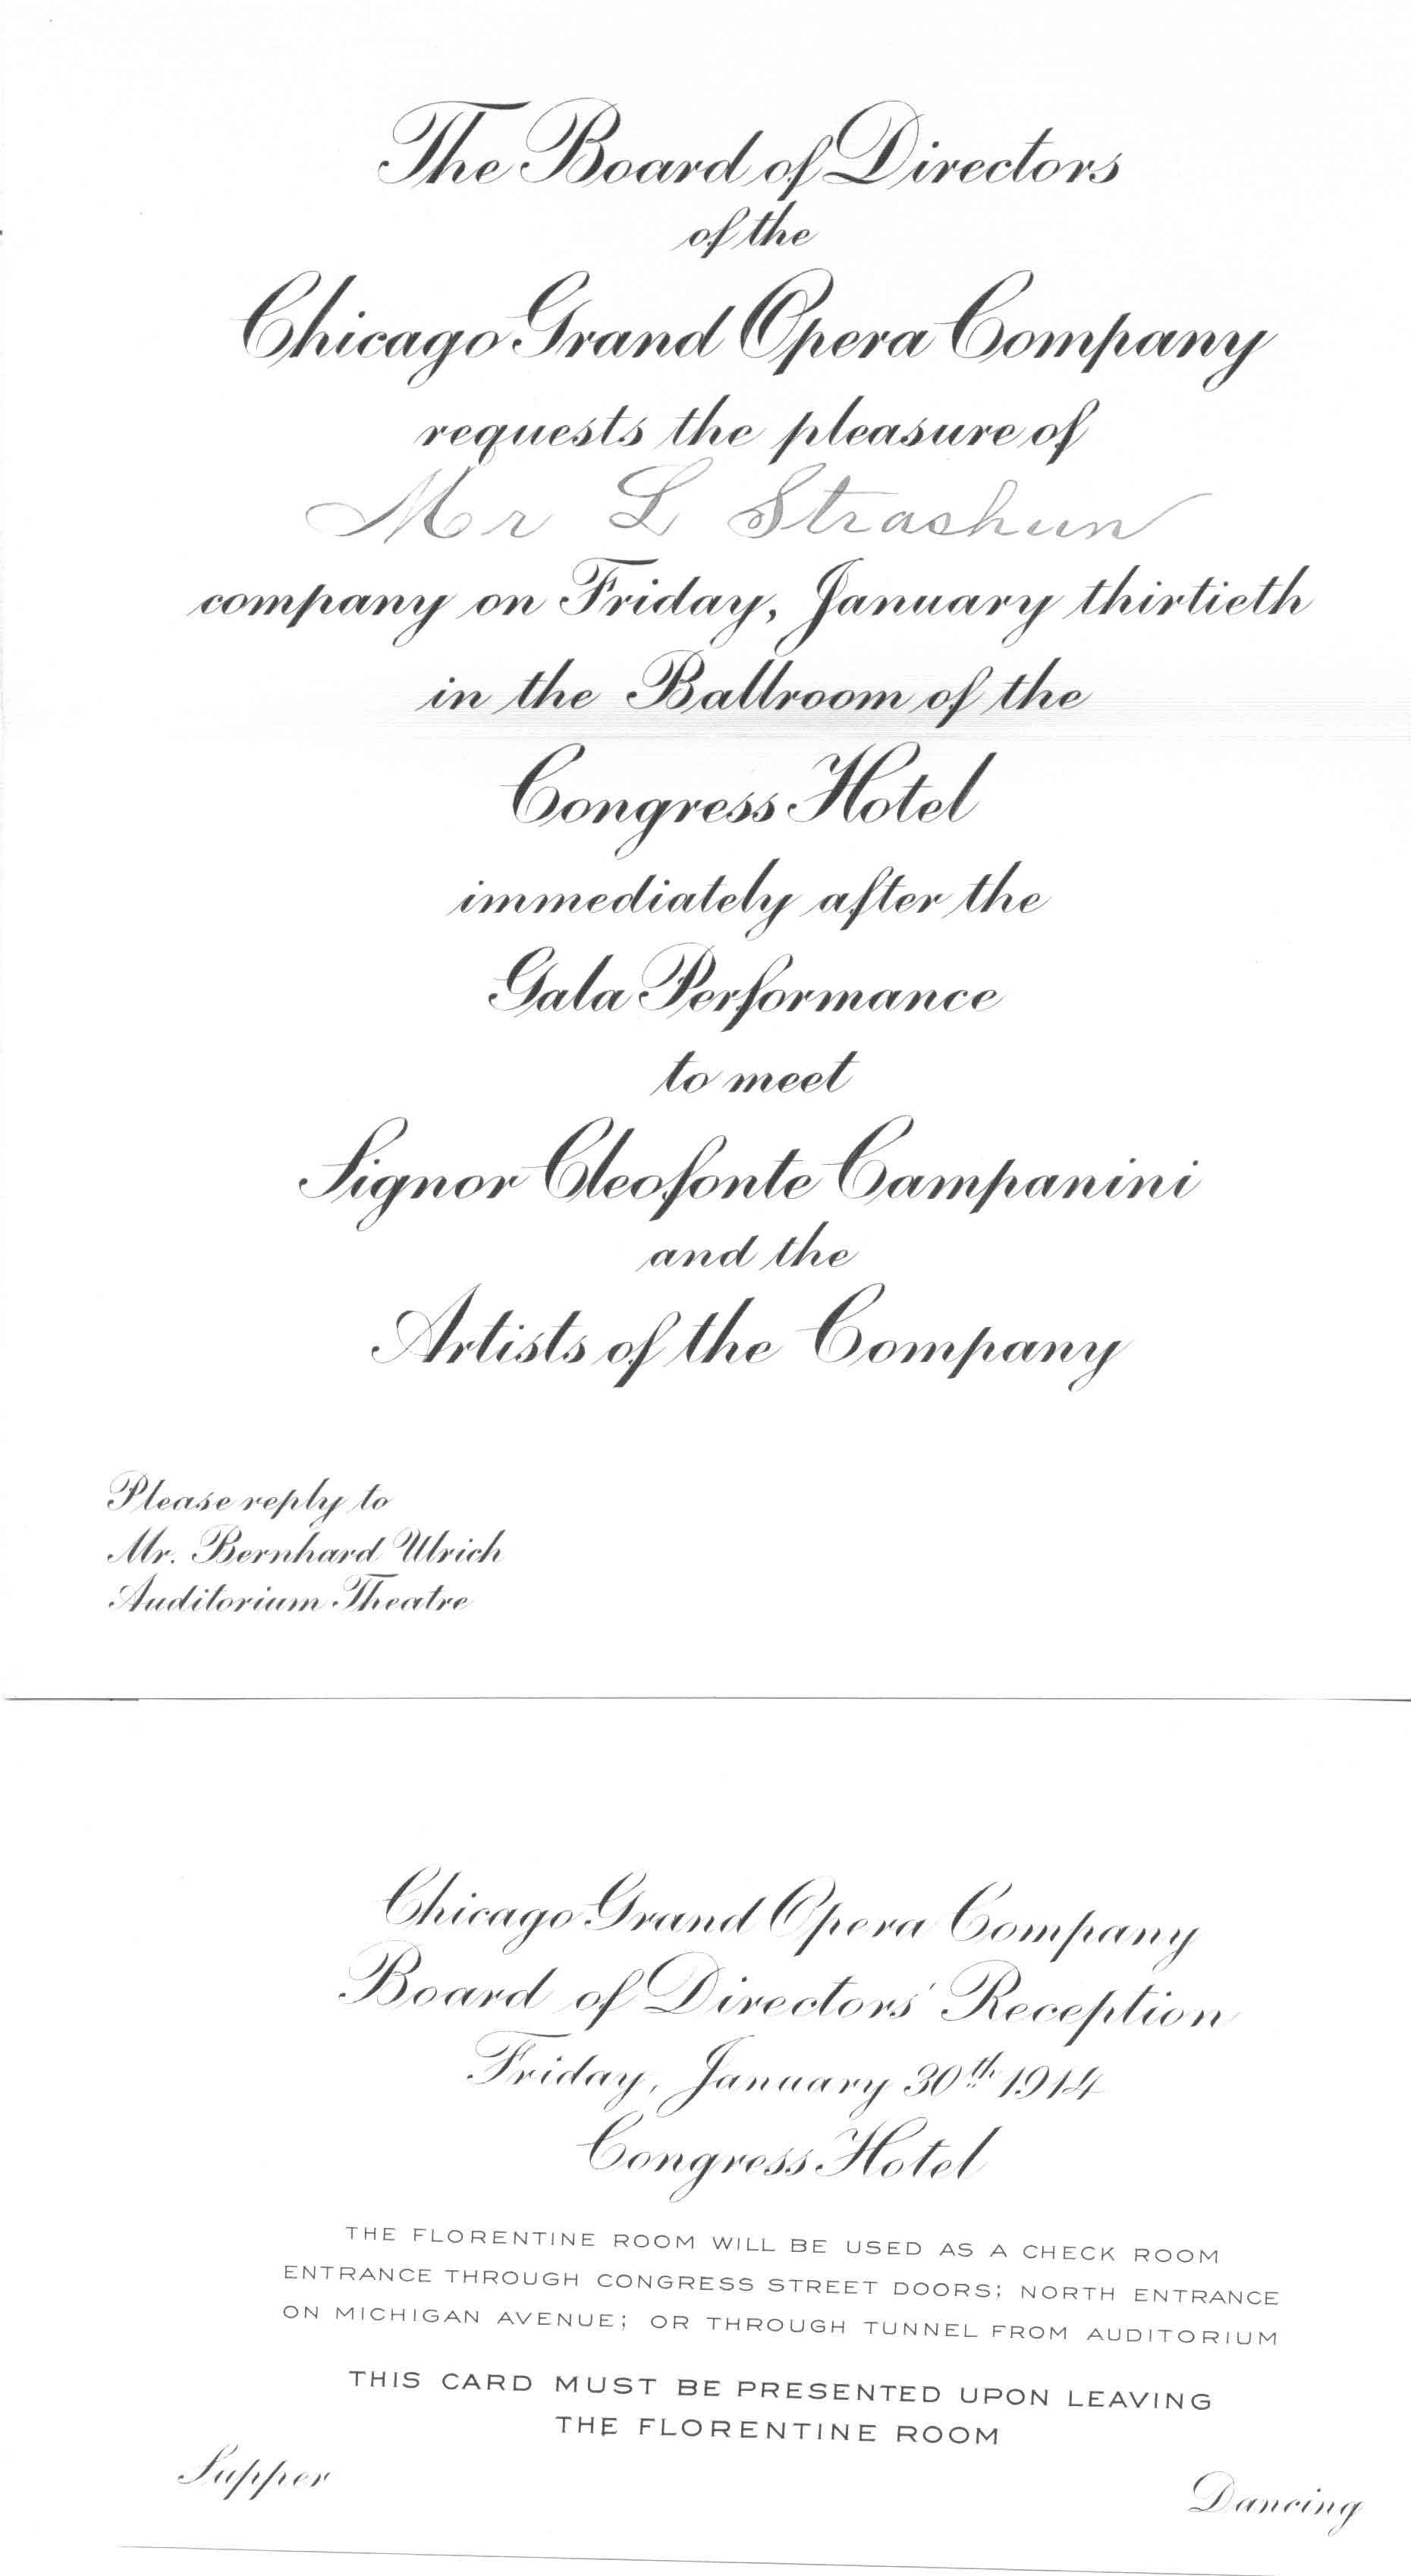 The Board of Directors
of the
Chicago Grand Opera Company
requests the pleasure of
Mr L Strashun
company on Friday, January thirtieth
in the Ballroom of the
Congress Hotel
immediately after the
Gala Performance
to meet
Signor Cleofonte Campanini
and the
Artists of the Company
Please reply to
Mr. Bernhard Ulrich
Auditorium Theatre
Chicago Grand Opera Company
Board of Directors' Reception
Friday, January 30th 1914
Congress Hotel
THE FLORENTINE ROOM WILL BE USED AS A CHECK ROOM
ENTRANCE THROUGH CONGRESS STREET DOORS; NORTH ENTRANCE
ON MICHIGAN AVENUE; OR THROUGH TUNNEL FROM AUDITORIUM
THIS CARD MUST BE PRESENTED UPON LEAVING
THE FLORENTINE ROOM
Supper
Dancing